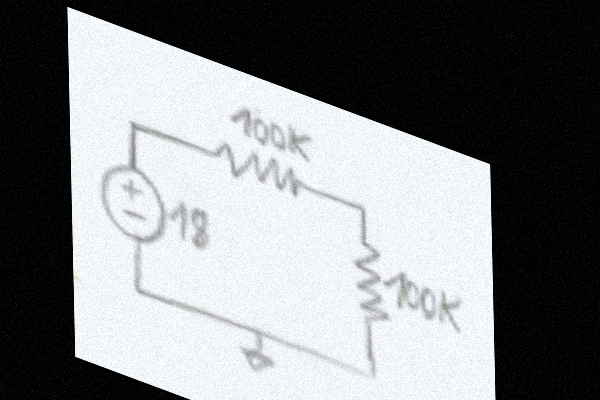 100K
18
100K